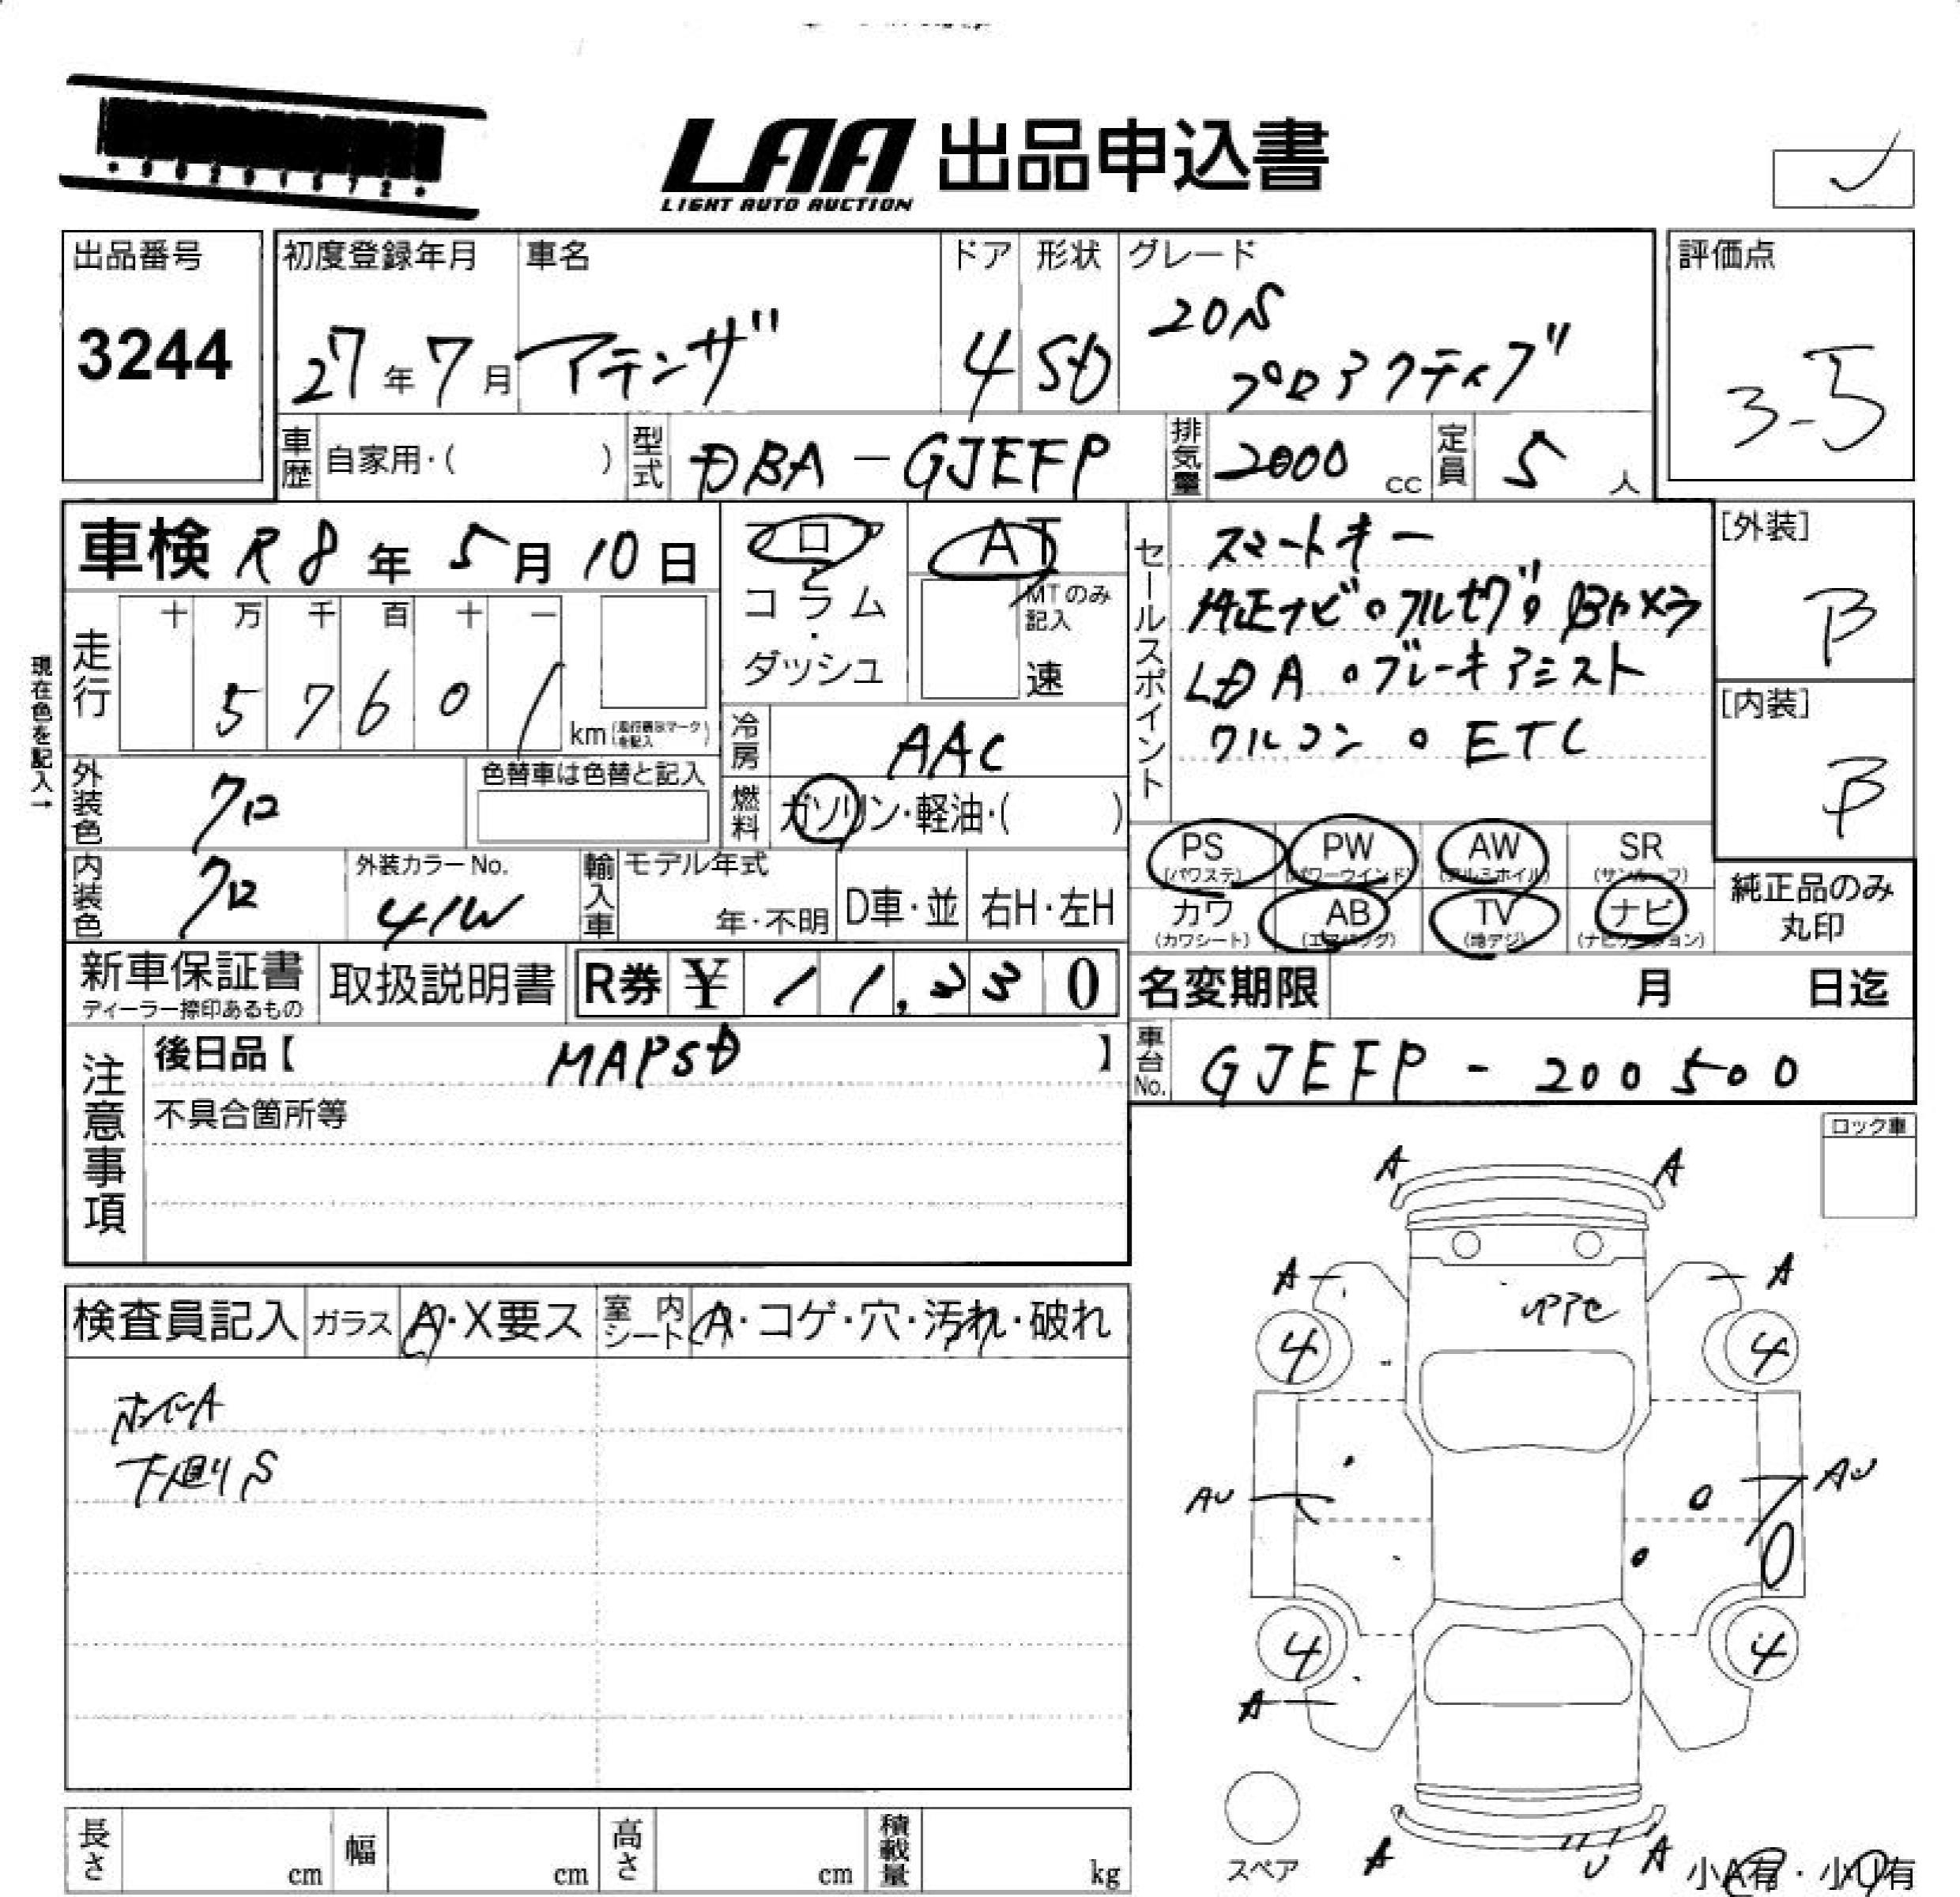 LAA 出品申込書
LIGHT AUTO AUCTION
出品番号
3244
初度登録年月
27年7月
車名
アテンザ
ドア
4
形状
SD
グレード
20S
プロアクティブ
評価点
3.5
車歴 自家用・( )
型式 DBA-GJEFP
排気量 2000 cc
定員 5 人
車検 R8年5月10日
フロア
コラム
・
ダッシュ
AT
MTのみ記入
速
セールスポイント
スマートキー
純正ナビ。フルセグ。Bカメラ
LDA。ブレーキアシスト
クルコン。ETC
[外装]
B
[内装]
B
現在色を記入→
走行
十 万 千 百 十 一
5 7 6 0 1
km (走行表示マークを記入)
冷房 AAC
燃料 ガソリン・軽油・( )
外装色 クロ
色替車は色替と記入
内装色 クロ
外装カラーNo.
41W
輸入車
モデル年式
年・不明
D車・並
右H・左H
PS (パワステ)
PW (パワーウインド)
AW (アルミホイル)
SR (サンルーフ)
カワ (カワシート)
AB (エアバッグ)
TV (地デジ)
ナビ (ナビゲーション)
純正品のみ
丸印
新車保証書
ディーラー捺印あるもの
取扱説明書
R券 ¥ 11,230
名変期限 月 日迄
注意事項
後日品【 MAPSD 】
不具合箇所等
車台No. GJEFP-200500
ロック車
検査員記入
ガラス A・X要ス
室内シート A・コゲ・穴・汚れ・破れ
ホイールA
下廻りS
A A
A A
4 4
AU AU
4 4
A
A U A
スペア
小A有・小U有
長さ cm
幅 cm
高さ cm
積載量 kg